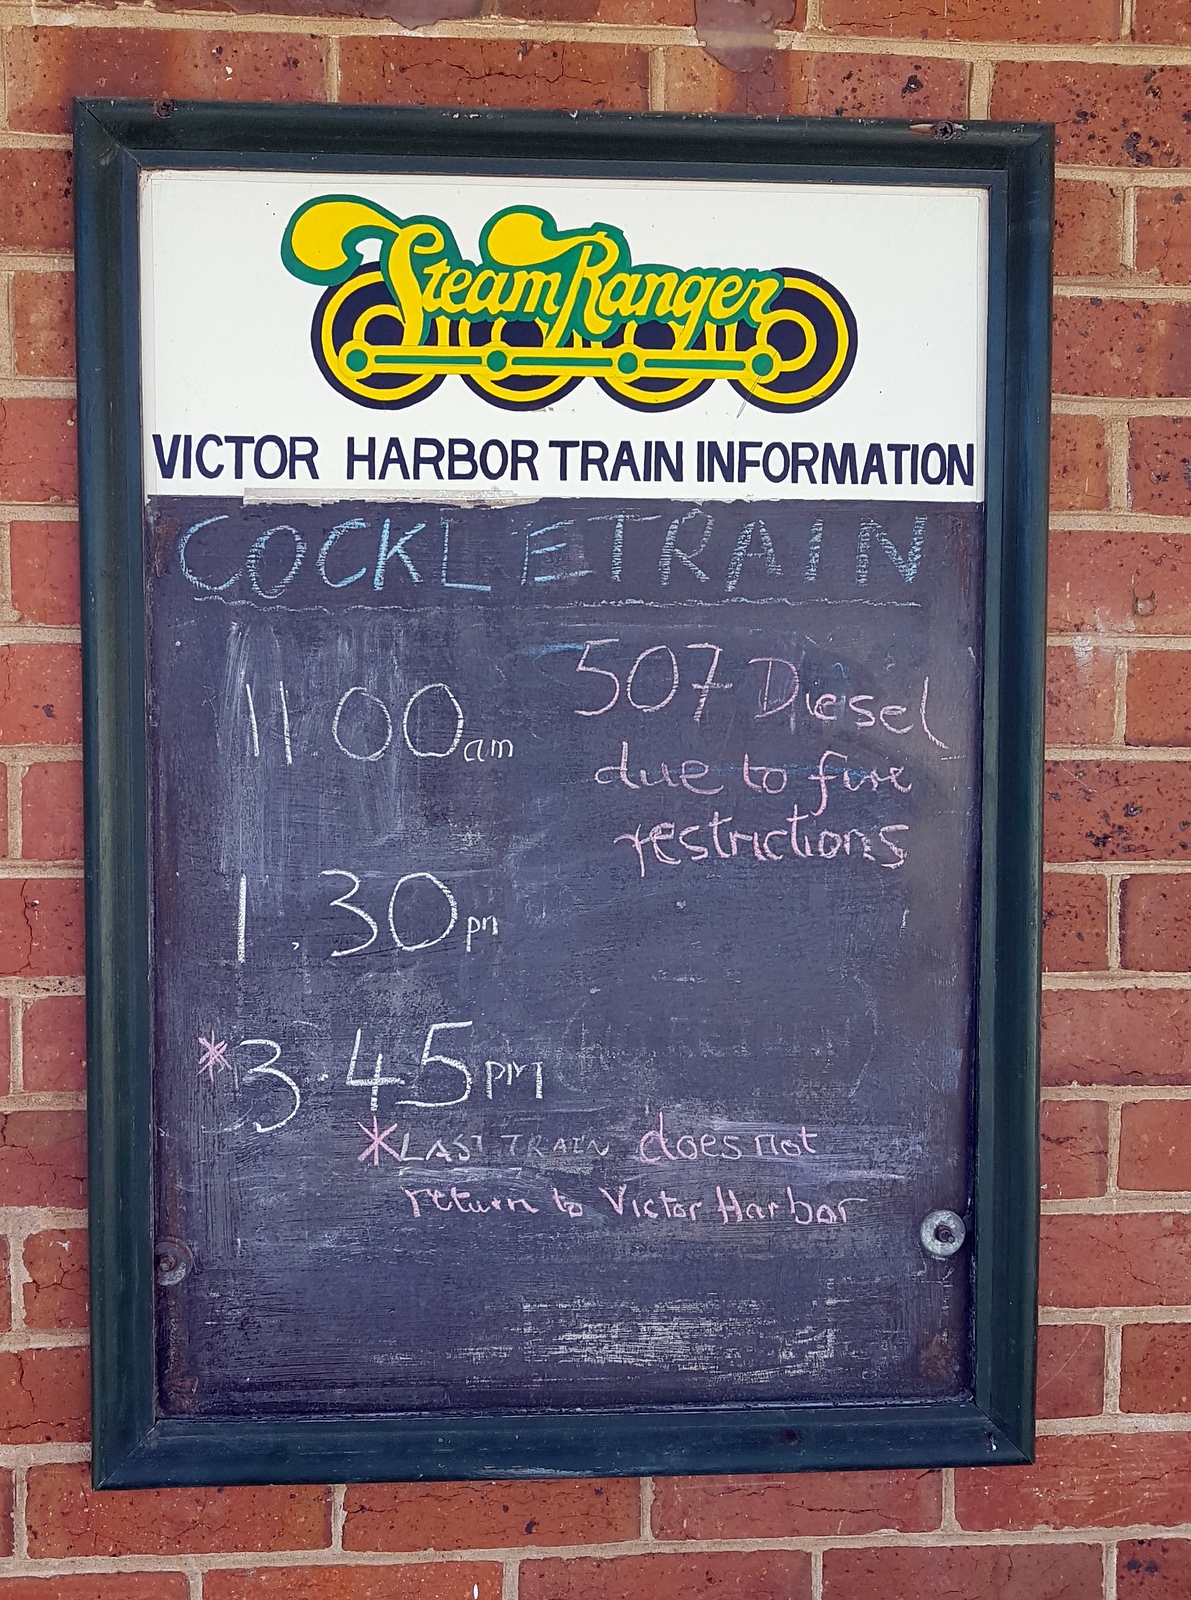 SteamRanger
VICTOR HARBOR TRAIN INFORMATION
COCKLE TRAIN
11 00 am
507 Diesel
due to fire
restrictions
1.30 pm
*3.45 pm
*LAST TRAIN does not
return to Victor Harbor